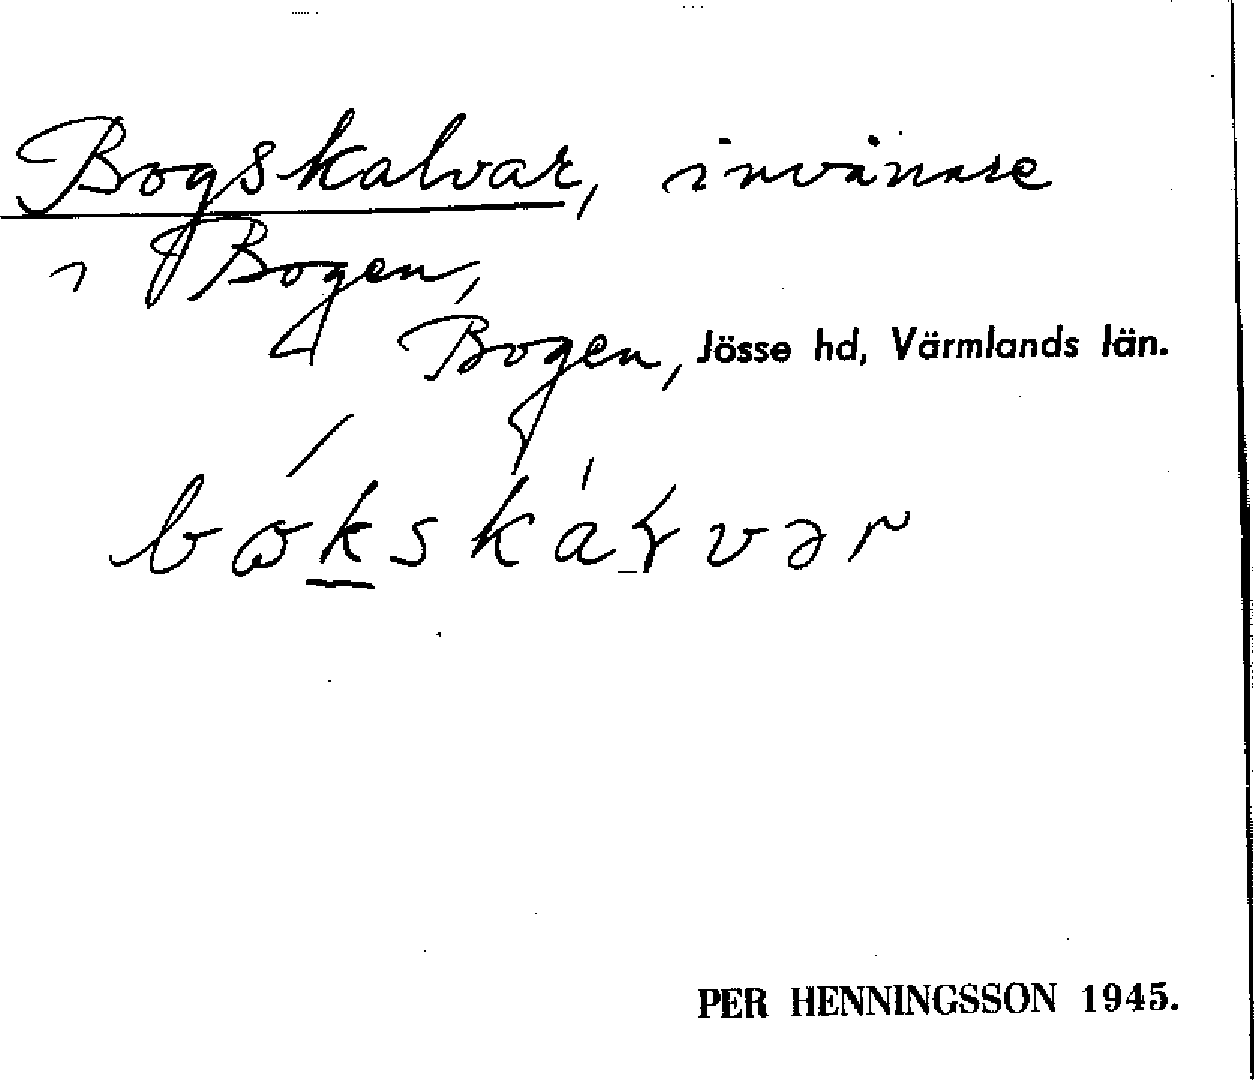 Bogskalvar, invånare
i Bogen,
Bogen, Jösse hd, Värmlands län.
PER HENNINGSSON 1945.